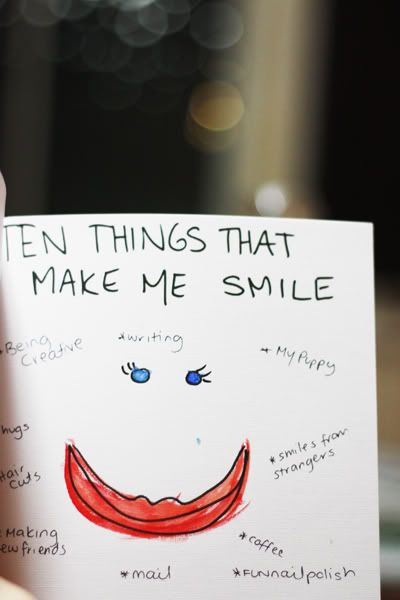 TEN THINGS THAT
MAKE ME SMILE
*Being
Creative
*writing
*My Puppy
hugs
*smiles from
strangers
Hair
Cuts
*Making
new friends
*coffee
*mail
*FUN nail polish